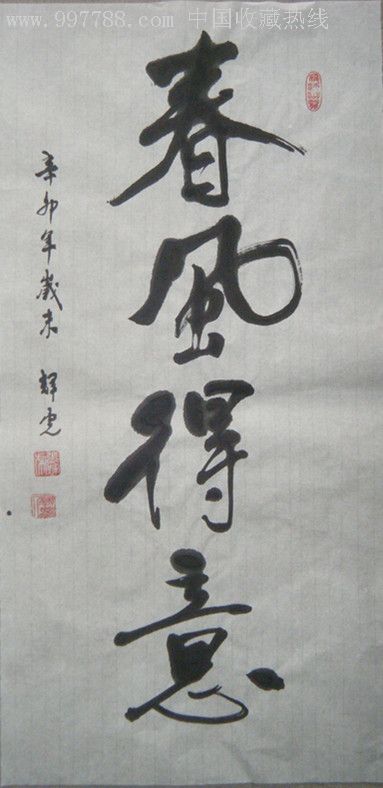 www.997788.com 中国收藏热线
春風得意
辛卯年歲末 輝虎